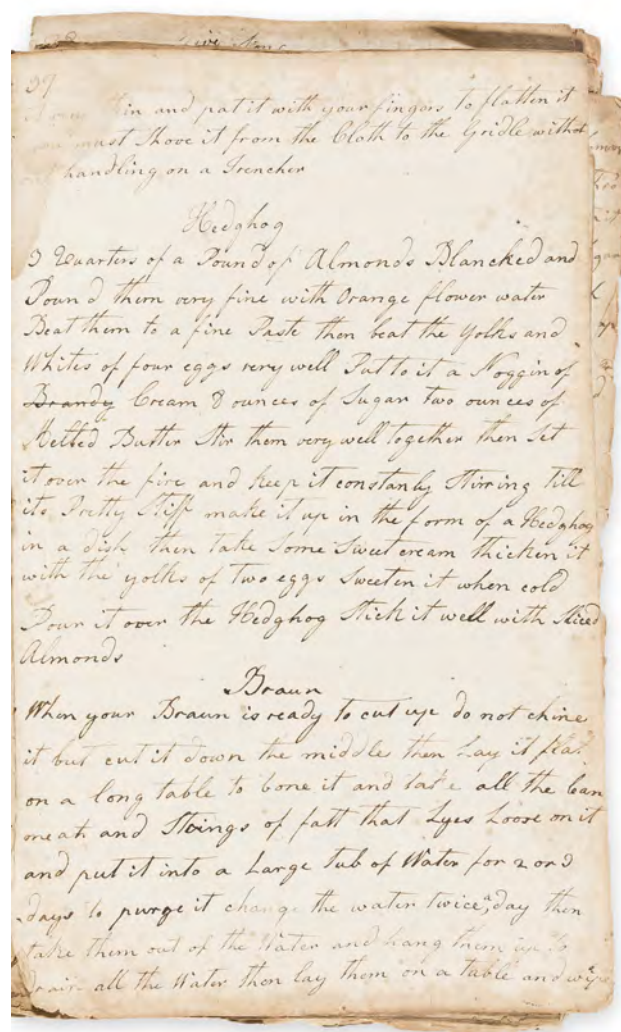 39
in and pat it with your fingers to flatten it
must Shove it from the Cloth to the Gridle without
handling on a Trencher
Hedghog
3 Quarters of a Pound of Almonds Blancked and
Pound them very fine with Orange flower water
Beat them to a fine Paste then beat the yolks and
Whites of four eggs very well Put to it a Noggin of
Brandy Cream 8 ounces of Sugar two ounces of
Melted Butter Stir them very well together then Set
it over the fire and keep it constanly Stirring till
its Pretty Stiff make it up in the form of a Hedghog
in a dish then take Some Sweet cream thicken it
with the yolks of two eggs Sweeten it when cold
Pour it over the Hedghog Stick it well with Sliced
Almonds
Braun
When your Braun is ready to cut up do not chine
it but cut it down the middle then Lay it flat
on a long table to bone it and take all the Lean
meat and Strings of fatt that Lyes Loose on it
and put it into a Large tub of Water for 2 or 3
days to purge it change the water twice a day then
take them out of the Water and hang them up to
drain all the Water then lay them on a table and wipe